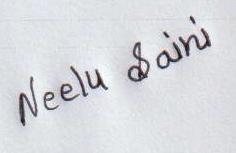 Neelu Saini